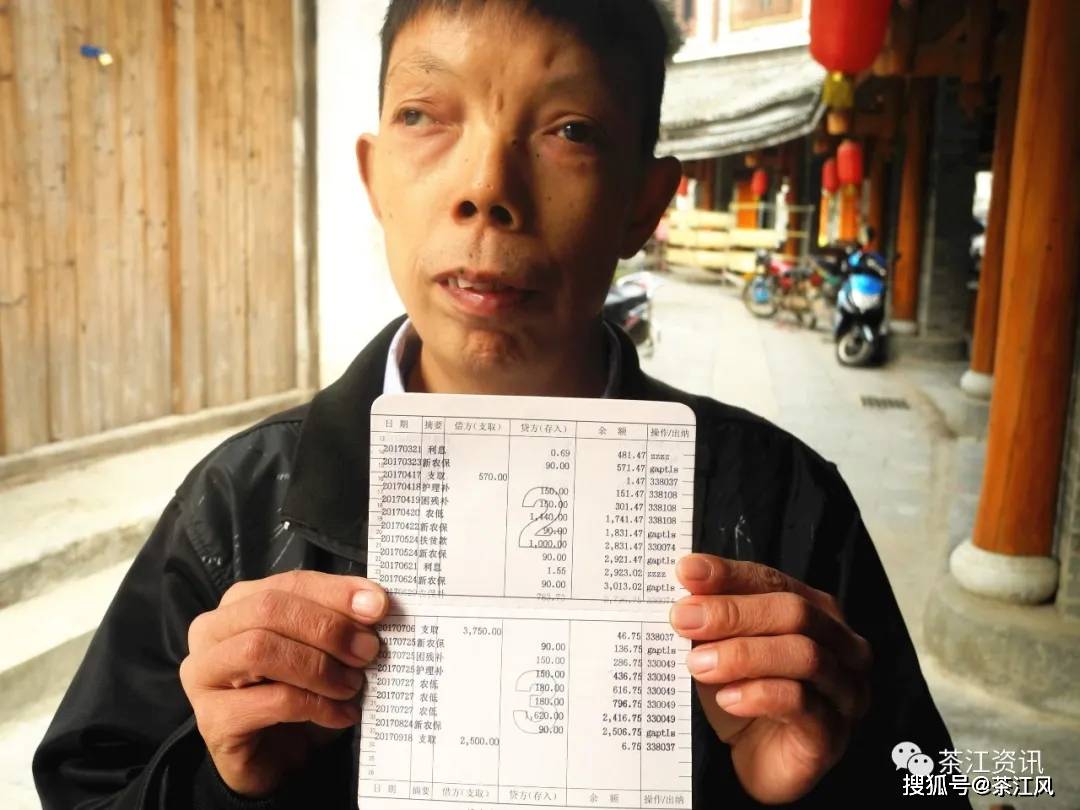 日 期 摘要 借方(支取) 贷方(存入) 余 额 操作/出纳
20170321 利息 0.69 481.47 zzzz
20170323 新农保 90.00 571.47 gaptls
20170417 支取 570.00 1.47 338037
20170418 护理补 150.00 151.47 338108
20170419 困残补 150.00 301.47 338108
20170420 农低 1,440.00 1,741.47 338108
20170422 新农保 90.00 1,831.47 gaptls
20170524 扶贫款 1,000.00 2,831.47 330074
20170524 新农保 90.00 2,921.47 gaptls
20170621 利息 1.55 2,923.02 zzzz
20170624 新农保 90.00 3,013.02 gaptls
2
20170706 支取 3,750.00 46.75 338037
20170725 新农保 90.00 136.75 gaptls
20170725 困残补 150.00 286.75 330049
20170725 护理补 150.00 436.75 330049
20170727 农低 180.00 616.75 330049
20170727 农低 180.00 796.75 330049
20170727 农低 1,620.00 2,416.75 330049
20170824 新农保 90.00 2,506.75 gaptls
20170918 支取 2,500.00 6.75 338037
3
日 期 摘要 借方(支取) 贷方(存入) 余 额 操作/出纳
茶江资讯
搜狐号@茶江风